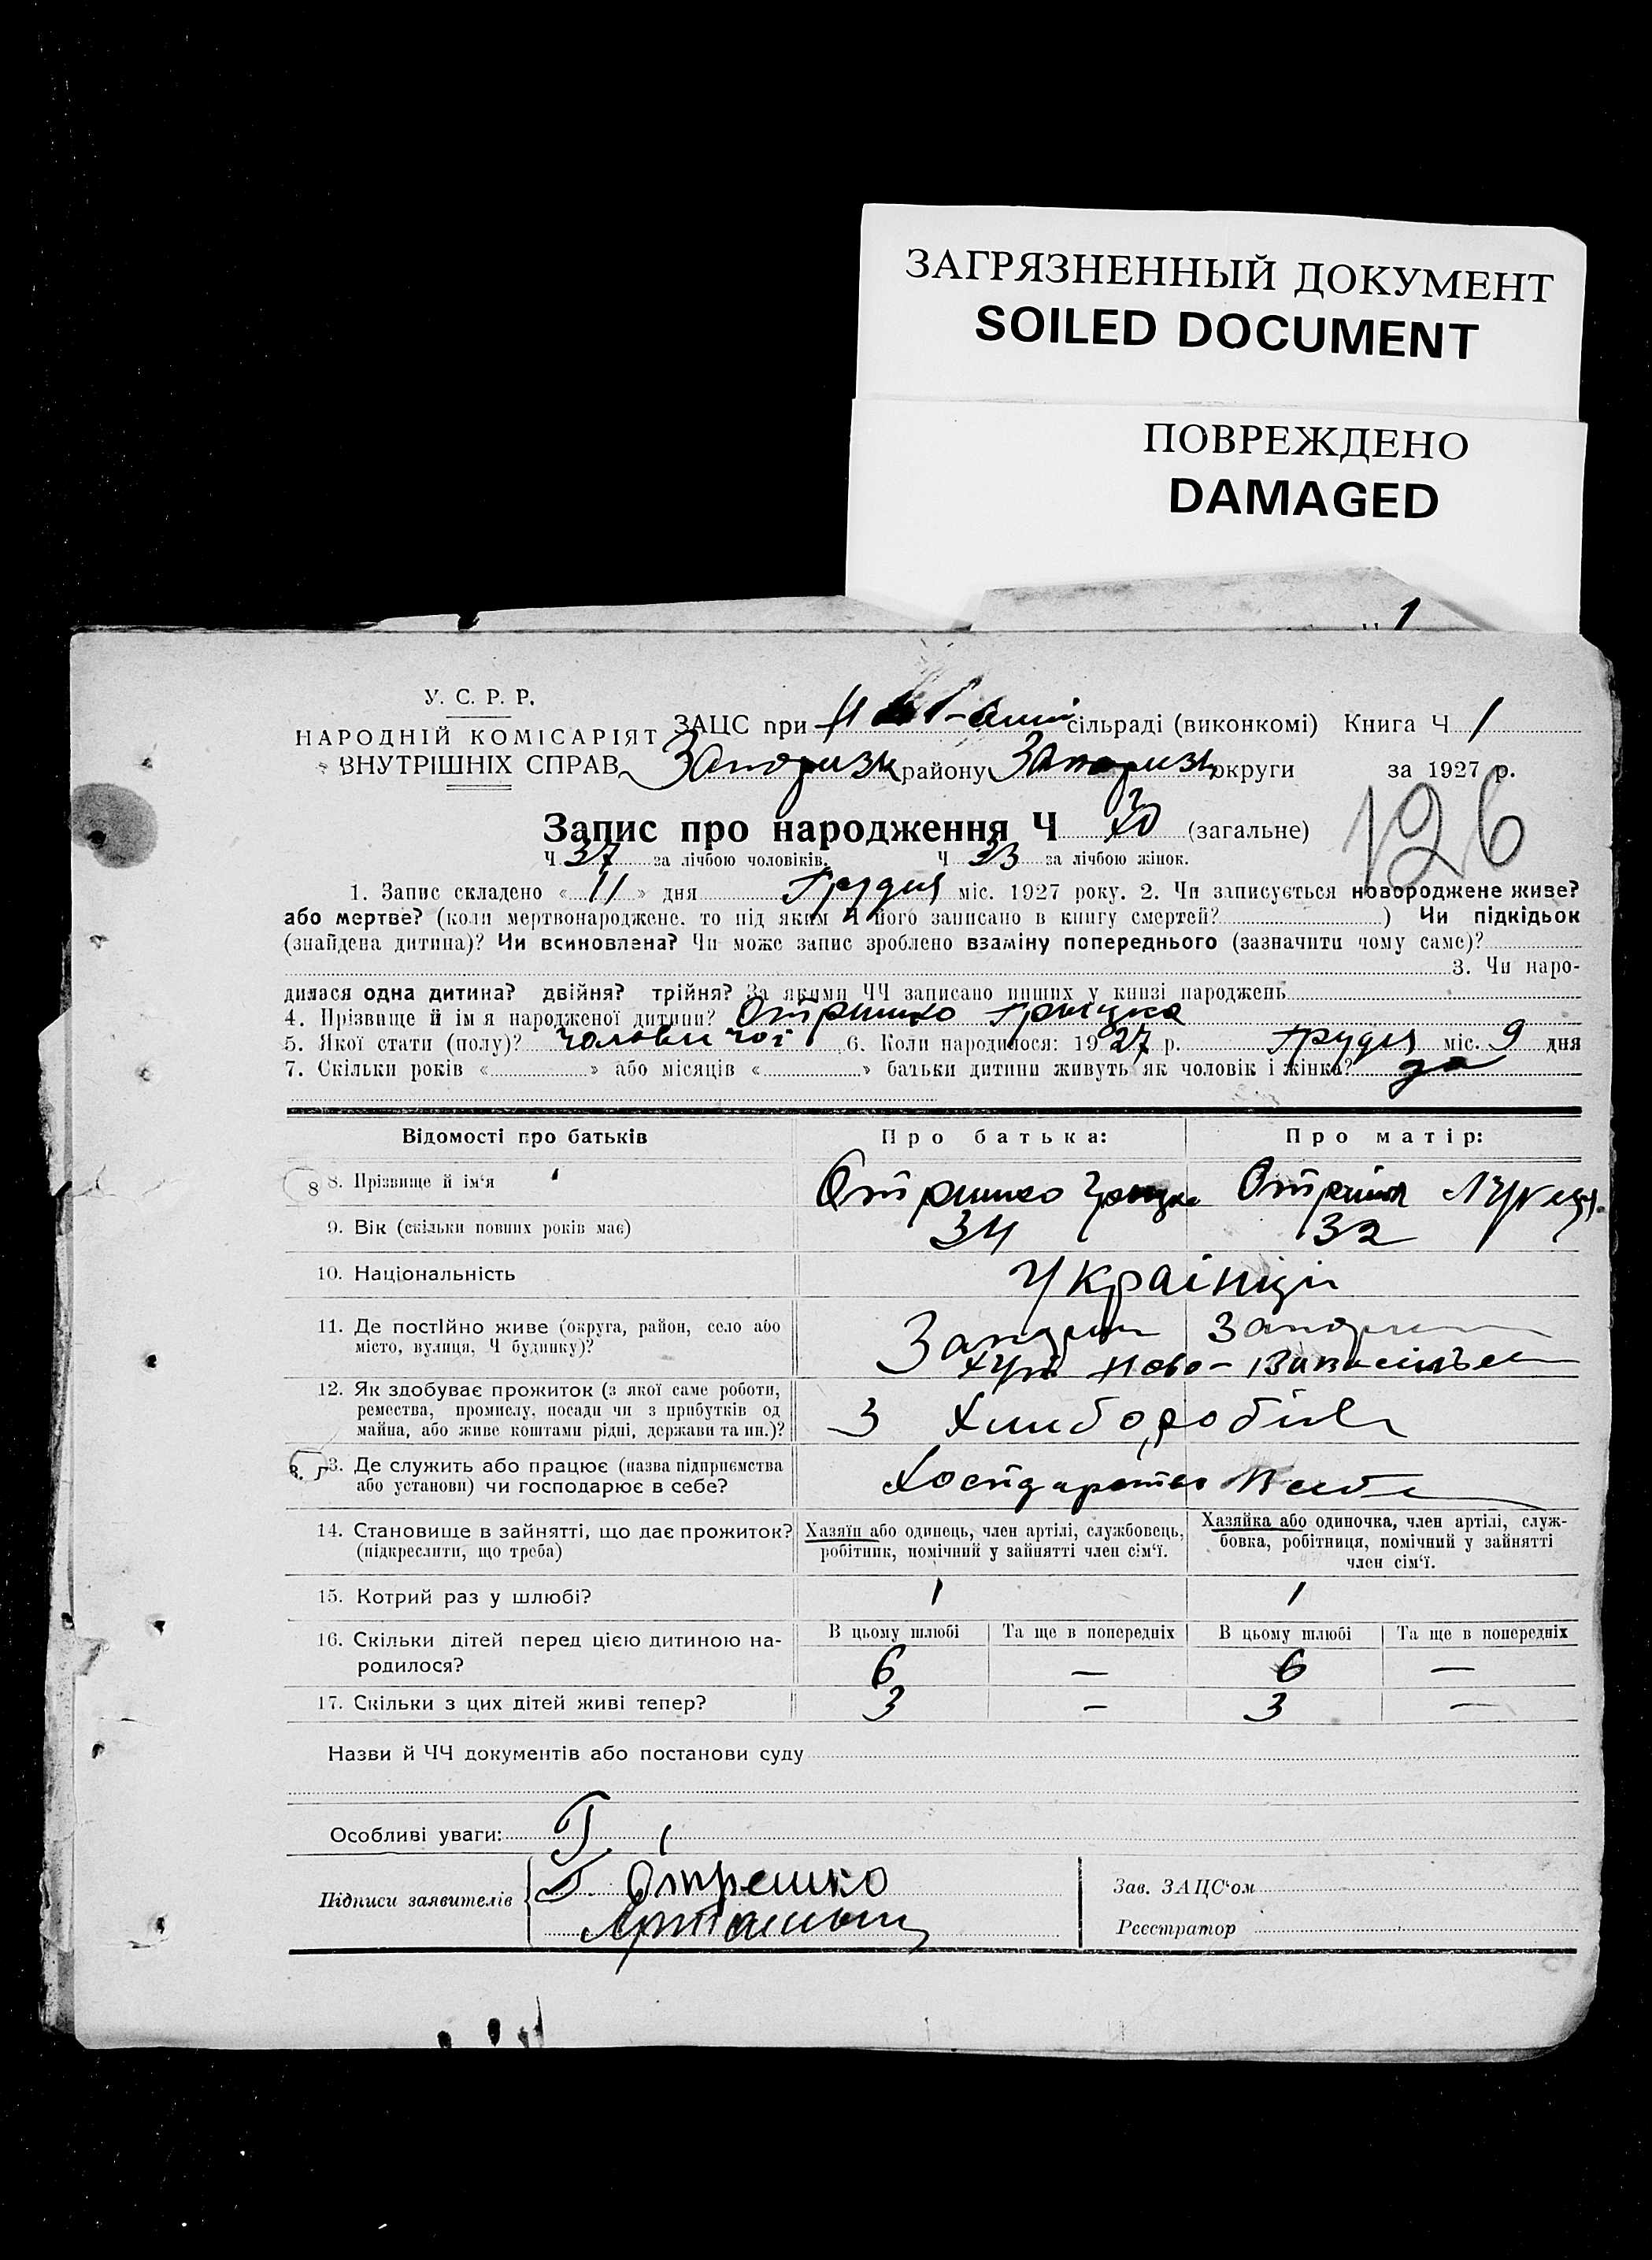 ЗАГРЯЗНЕННЫЙ ДОКУМЕНТ
SOILED DOCUMENT
ПОВРЕЖДЕНО
DAMAGED
1
У. С. Р. Р.
НАРОДНІЙ КОМІСАРІЯТ
ВНУТРІШНІХ СПРАВ
ЗАЦС при сільраді (виконкомі) Книга Ч 1
Запоризьк району Запоризьк округи за 1927 р.
126
Запис про народження Ч (загальне)
Ч 37 за лічбою чоловіків. Ч 33 за лічбою жінок.
1. Запис складено « 11 » дня Грудня міс. 1927 року. 2. Чи записується новороджене живе?
або мертве? (коли мертвонароджене, то під яким Ч його записано в книгу смертей? ) Чи підкідьок
(знайдена дитина)? Чи всиновлена? Чи може запис зроблено взаміну попереднього (зазначити чому саме)?
3. Чи наро-
дилася одна дитина? двійня? трійня? За якими ЧЧ записано инших у книзі народжень
4. Прізвище й ім я народженої дитини? Отришко Грицко
5. Якої стати (полу)? чоловичої 6. Коли народилося: 1927 р. Грудня міс. 9 дня
7. Скільки років « » або місяців « » батьки дитини живуть як чоловік і жінка? да
Відомості про батьків Про батька: Про матір:
8 8. Прізвище й ім‘я Отришко Грицко Отришко
9. Вік (скільки повних років має) 34 32
10. Національність Українці
11. Де постійно живе (округа, район, село або
місто, вулиця, Ч будинку)?
12. Як здобуває прожиток (з якої саме роботи,
ремества, промислу, посади чи з прибутків од
майна, або живе коштами рідні, держави та ин.)?
З Хлиборобів
13. Де служить або працює (назва підприємства
або установи) чи господарює в себе?
14. Становище в зайнятті, що дає прожиток?
(підкреслити, що треба)
Хазяїн або одинець, член артілі, службовець,
робітник, помічний у зайнятті член сім‘ї.
Хазяйка або одиночка, член артілі, служ-
бовка, робітниця, помічний у зайнятті
член сім‘ї.
15. Котрий раз у шлюбі? 1 1
16. Скільки дітей перед цією дитиною на-
родилося?
В цьому шлюбі Та ще в попередніх В цьому шлюбі Та ще в попередніх
6 — 6 —
17. Скільки з цих дітей живі тепер? 3 - 3 —
Назви й ЧЧ документів або постанови суду
Особливі уваги:
Підписи заявителів Г. Отрешко
Зав. ЗАЦС‘ом
Реєстратор